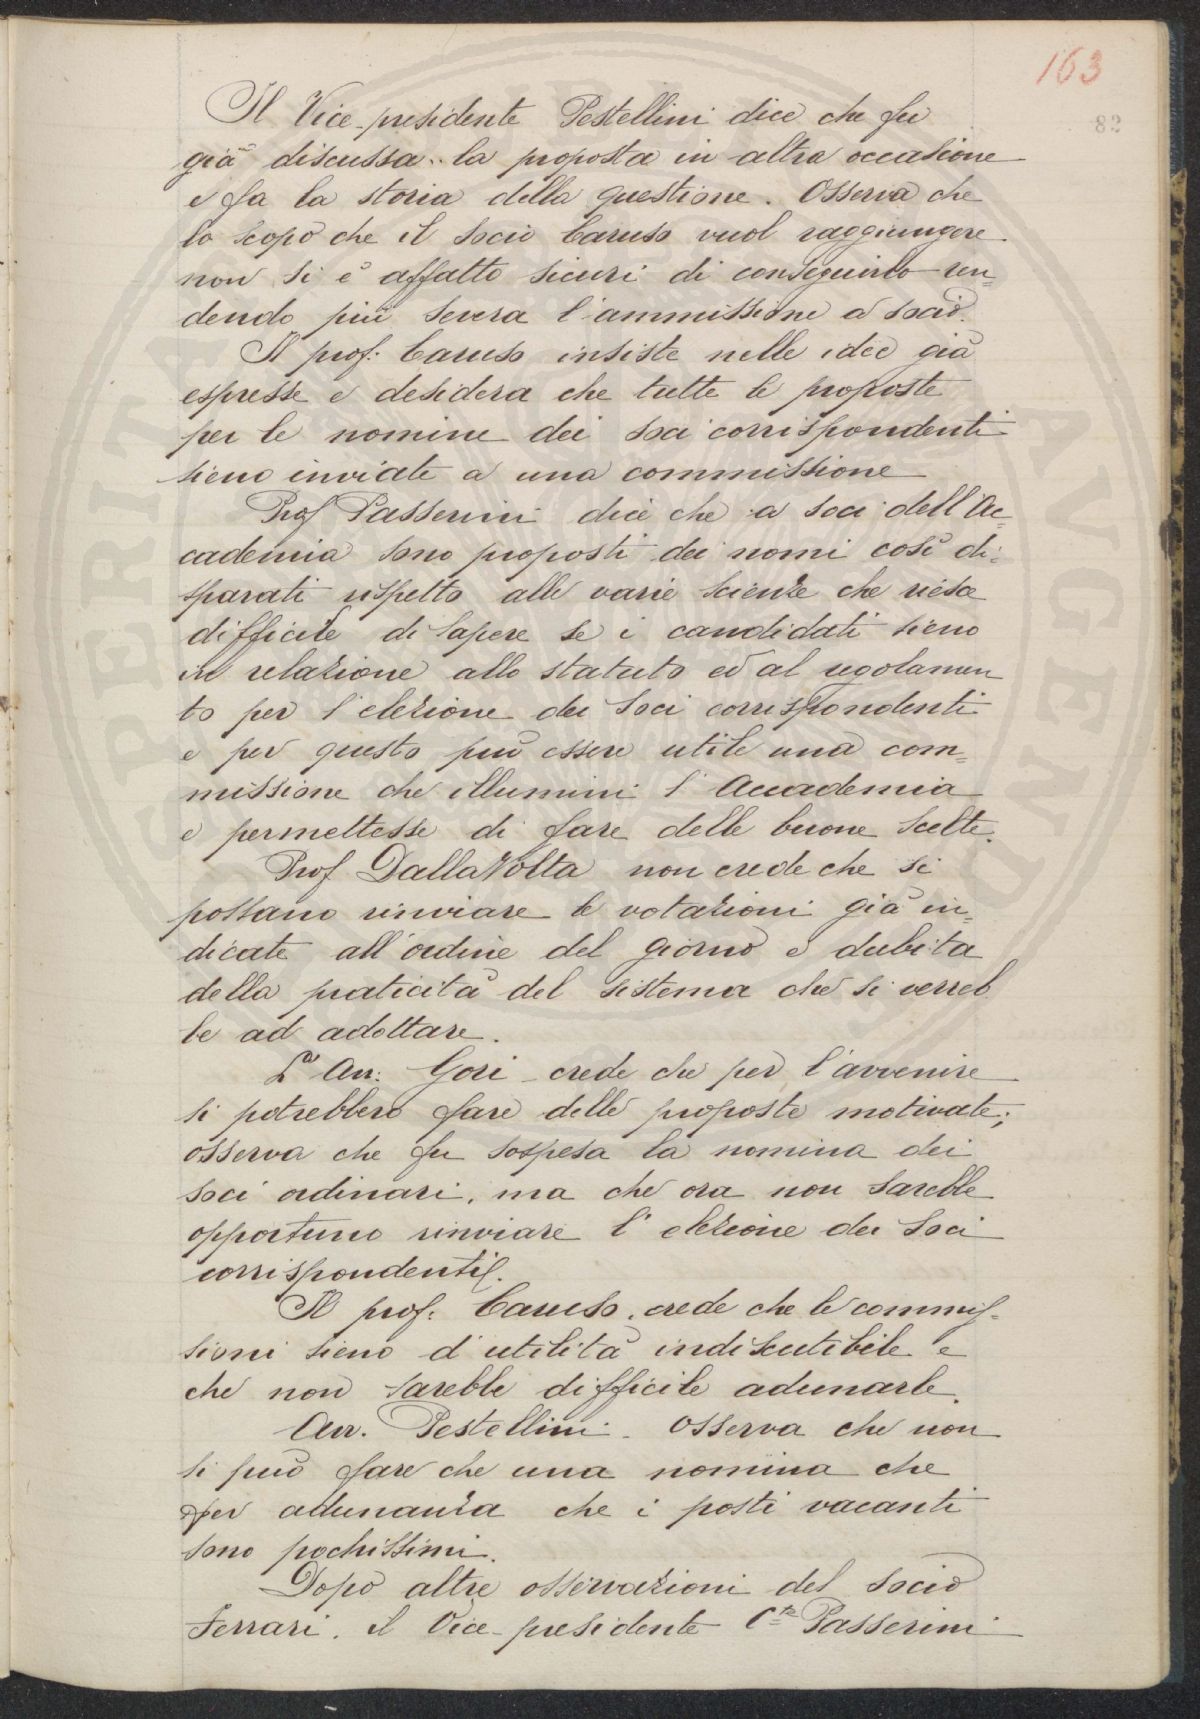 163
82
Il Vice-presidente Pestellini dice che fu
già discussa la proposta in altra occasione
e fa la storia della questione. Osserva che
lo scopo che il socio Caruso vuol raggiungere
non si è affatto sicuri di conseguirlo ren=
dendo più severa l'ammissione a socio.
Il prof: Caruso insiste nelle idee già
espresse e desidera che tutte le proposte
per le nomine dei soci corrispondenti
sieno inviate a una commissione
Prof Passerini dice che a soci dell'Ac=
cademia sono proposti dei nomi così di=
sparati rispetto alle varie scienze che riesce
difficile di sapere se i candidati sieno
in relazione allo statuto ed al regolamen
to per l'elezione dei soci corrispondenti
e per questo può essere utile una com=
missione che illumini l'Accademia
e permettesse di fare delle buone scelte.
Prof Dalla Volta non crede che si
possano rinviare le votazioni già in=
dicate all'ordine del giorno e dubita
della praticità del sistema che si verreb
be ad adottare.
L'Avv: Gori crede che per l'avvenire
si potrebbero fare delle proposte motivate;
osserva che fu sospesa la nomina dei
soci ordinari, ma che ora non sarebbe
opportuno rinviare l'elezione dei soci
corrispondenti.
Il prof: Caruso crede che le commis=
sioni sieno d'utilità indiscutibile e
che non sarebbe difficile adunarle.
Avv. Pestellini. Osserva che non
si può fare che una nomina che
per adunanza che i posti vacanti
sono pochissimi.
Dopo altre osservazioni del socio
Ferrari, il Vice-presidente C.te Passerini